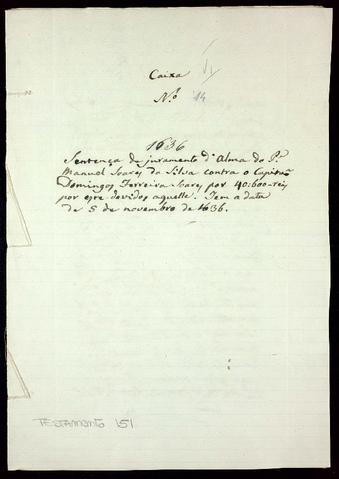 Caixa VI
Nº 14
1636
Sentença de juramento d'Alma do Pe
Manuel Soares da Silva contra o Capitão
Domingos Ferreira Soares por 40:600 reis
por este devidos aquelle. Tem a data
de 5 de novembro de 1636.
TESTAMENTO 151